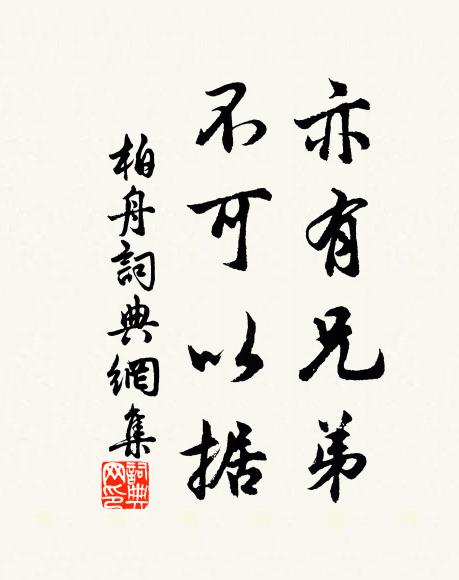 亦有兄弟
不可以据
柏舟詞典網集
詞典网印